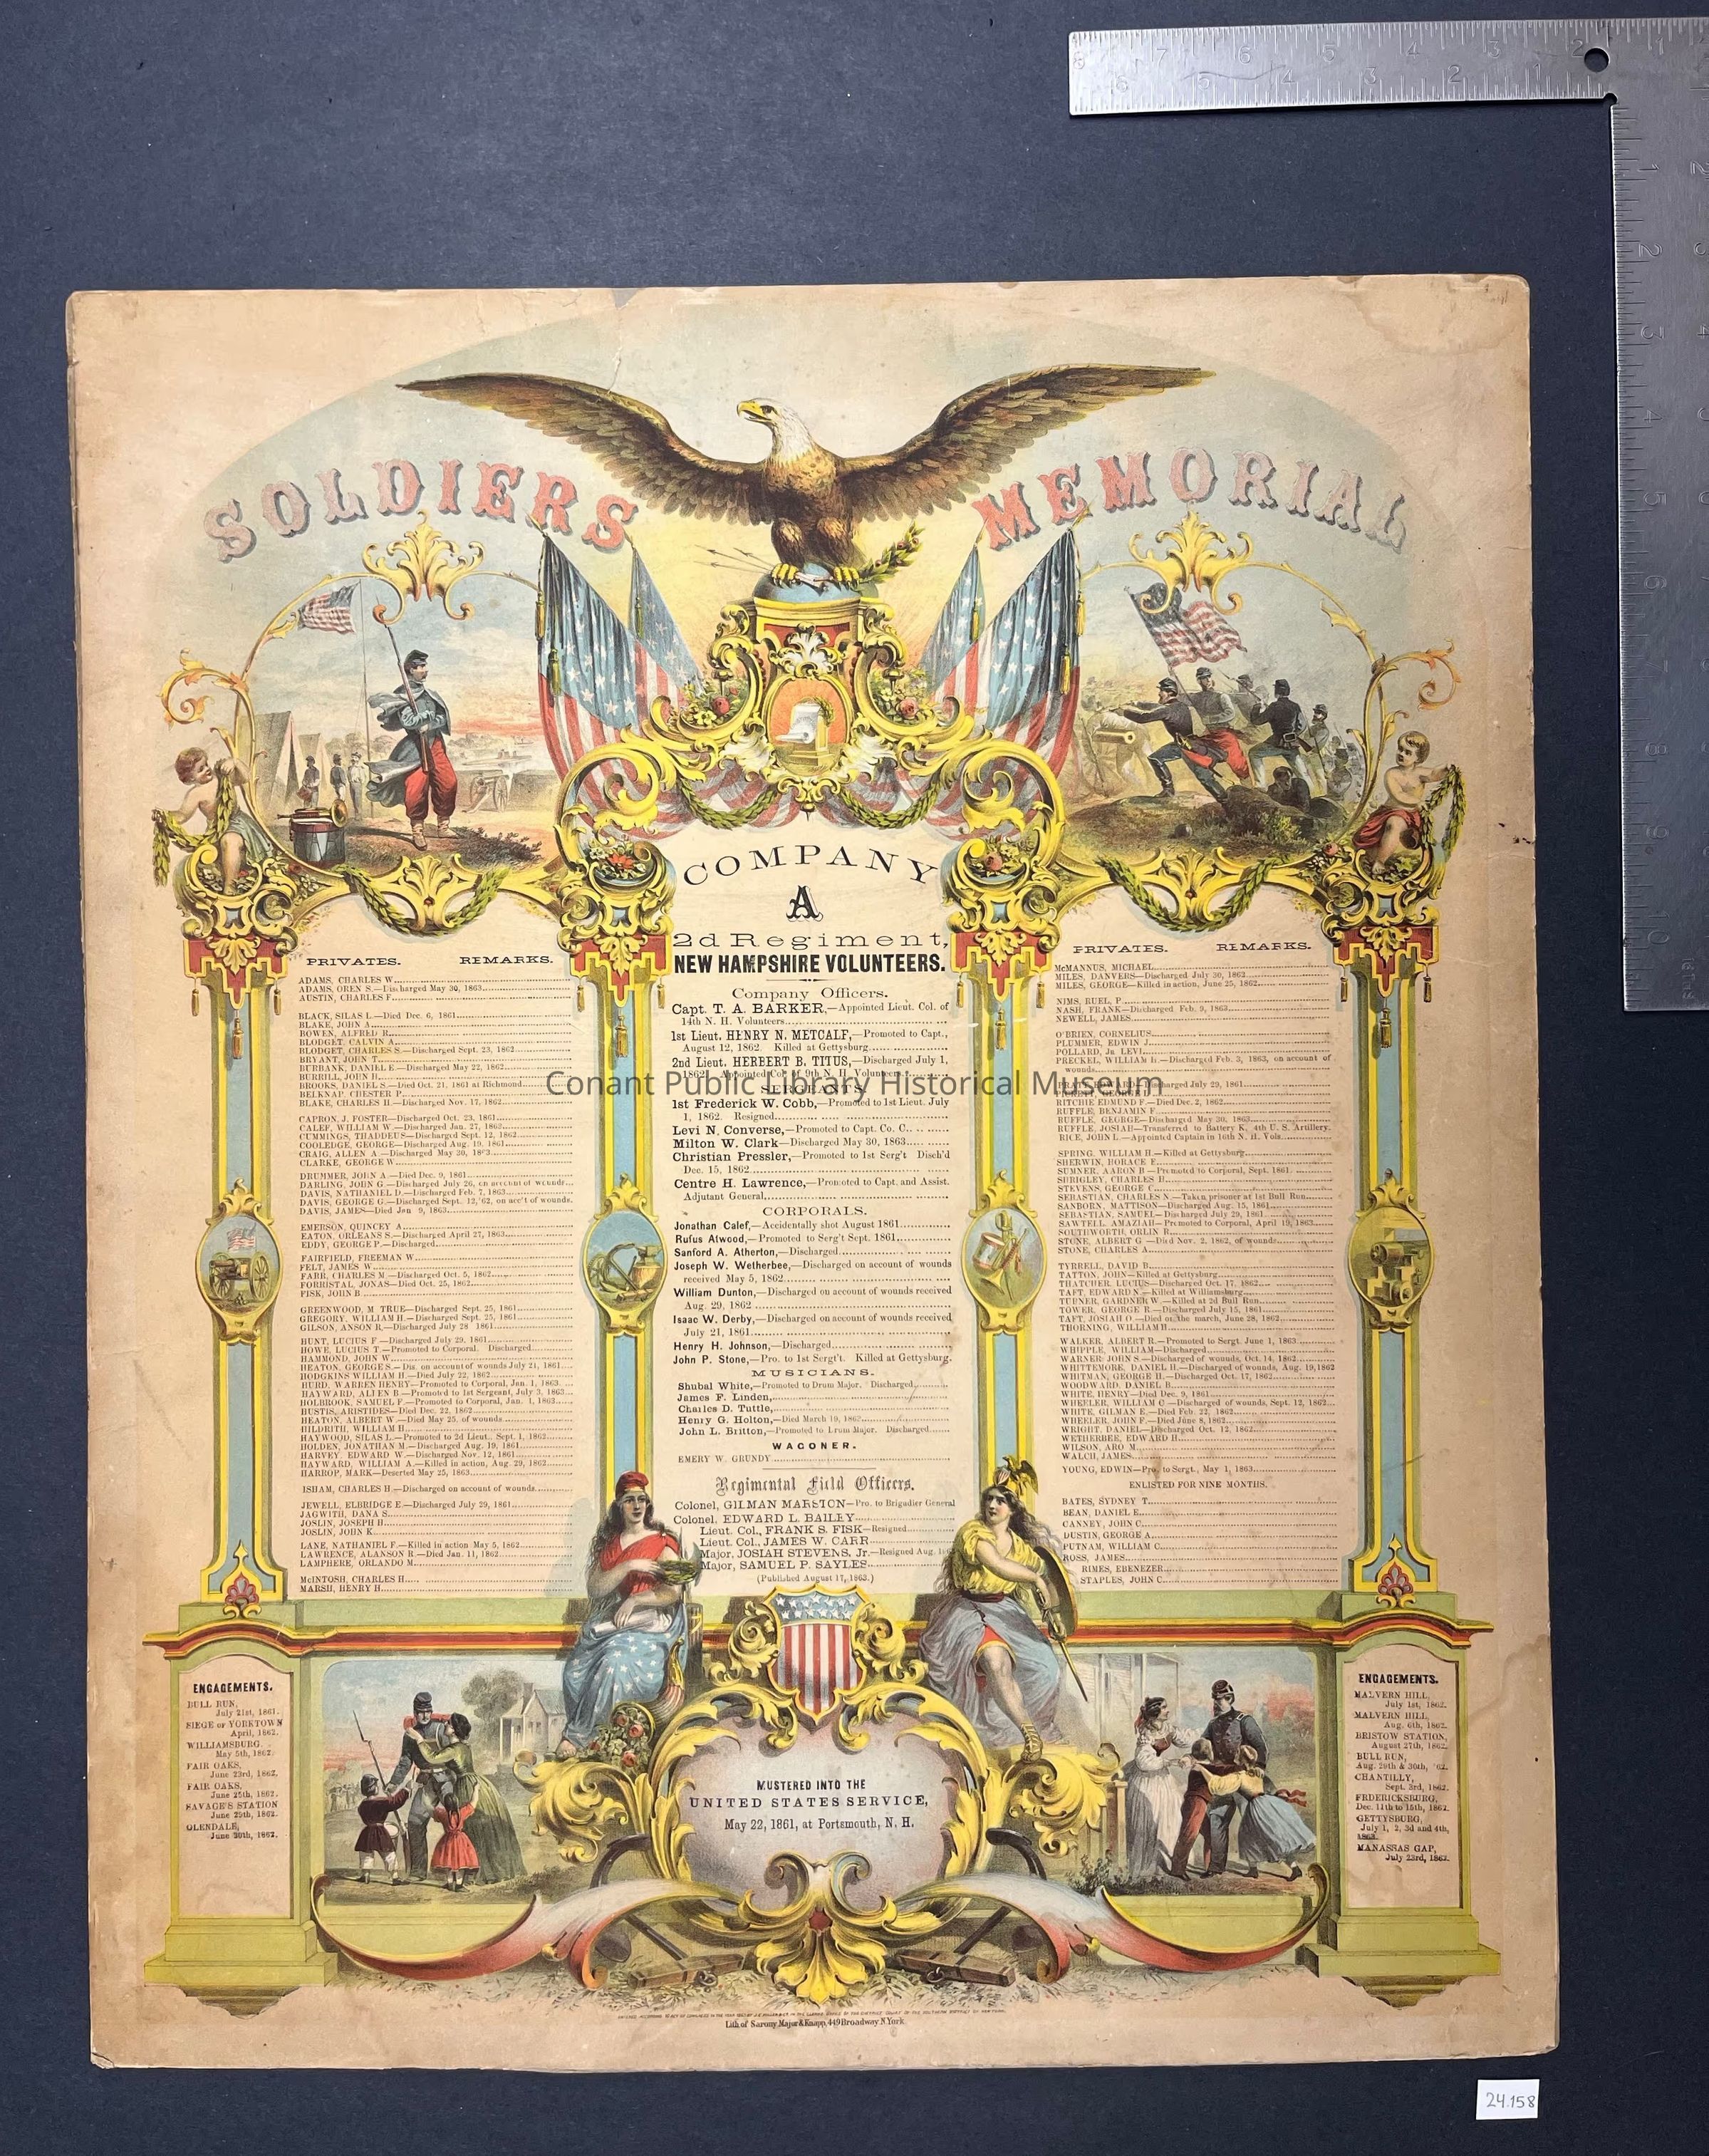 SOLDIERS MEMORIAL
COMPANY
A
2d Regiment,
NEW HAMPSHIRE VOLUNTEERS.
PRIVATES. REMARKS.
ADAMS, CHARLES W.
ADAMS, OREN S.—Discharged May 30, 1863
AUSTIN, CHARLES F.
BLACK, SILAS L.—Died Dec. 6, 1861
BLAKE, JOHN A.
BOWEN, ALFRED R.
BLODGET, CALVIN A.
BLODGET, CHARLES S.—Discharged Sept. 23, 1862
BRYANT, JOHN T.
BURBANK, DANIEL E.—Discharged May 22, 1862
BURRILL, JOHN H.
BROOKS, DANIEL S.—Died Oct. 21, 1861 at Richmond
BELKNAP, CHESTER P.
BLAKE, CHARLES H.—Discharged Nov. 17, 1862
CAPRON, J. FOSTER—Discharged Oct. 23, 1861
CALEF, WILLIAM W.—Discharged Jan. 27, 1862
CUMMINGS, THADDEUS—Discharged Sept. 12, 1862
COOLEDGE, GEORGE—Discharged Aug. 19, 1861
CRAIG, ALLEN A.—Discharged May 30, 1863
CLARKE, GEORGE W.
DRUMMER, JOHN A.—Died Dec. 9, 1861
DARLING, JOHN G.—Discharged July 26, on account of wounds
DAVIS, NATHANIEL D.—Discharged Feb. 7, 1863
DAVIS, GEORGE G.—Discharged Sept. 12, '62, on acc't of wounds.
DAVIS, JAMES—Died Jan 9, 1863
EMERSON, QUINCEY A.
EATON, ORLEANS S.—Discharged April 27, 1863
EDDY, GEORGE P.—Discharged
FAIRFIELD, FREEMAN W.
FELT, JAMES W.
FARR, CHARLES M.—Discharged Oct. 5, 1862
FORRISTAL, JONAS—Died Oct. 25, 1862
FISK, JOHN B.
GREENWOOD, M TRUE—Discharged Sept. 25, 1861
GREGORY, WILLIAM H.—Discharged Sept. 25, 1861
GILSON, ANSON R.—Discharged July 28 1861
HUNT, LUCIUS F.—Discharged July 29, 1861
HOWE, LUCIUS T.—Promoted to Corporal. Discharged
HAMMOND, JOHN W.
HEATON, GEORGE S.—Dis. on account of wounds July 21, 1861
HODGKINS WILLIAM H.—Died July 22, 1862
HURD, WARREN HENRY—Promoted to Corporal, Jan. 1, 1863
HAYWARD, ALLEN B.—Promoted to 1st Sergeant, July 3, 1863
HOLBROOK, SAMUEL F.—Promoted to Corporal, Jan. 1, 1863
HUSTIS, ARISTIDES—Died Dec. 22, 1862
HEATON, ALBERT W.—Died May 25, of wounds
HILDRITH, WILLIAM H.
HAYWOOD, SILAS L.—Promoted to 2d Lieut., Sept. 1, 1862
HOLDEN, JONATHAN M.—Discharged Aug. 19, 1861
HARVEY, EDWARD W.—Discharged Nov. 12, 1861
HAYWARD, WILLIAM A.—Killed in action, Aug. 29, 1862
HARROP, MARK—Deserted May 25, 1863
ISHAM, CHARLES H.—Discharged on account of wounds
JEWELL, ELBRIDGE E.—Discharged July 29, 1861
JAGWITH, DANA S.
JOSLIN, JOSEPH H.
JOSLIN, JOHN K.
LANE, NATHANIEL F.—Killed in action May 5, 1862
LAWRENCE, ALANSON R.—Died Jan. 11, 1862
LAMPHERE, ORLANDO M.
McINTOSH, CHARLES H.
MARSH, HENRY H.
Company Officers.
Capt. T. A. BARKER,—Appointed Lieut. Col. of
14th N. H. Volunteers
1st Lieut. HENRY N. METCALF,—Promoted to Capt.,
August 12, 1862. Killed at Gettysburg
2nd Lieut. HERBERT B. TITUS,—Discharged July 1,
1862. Appointed Col. of 9th N. H. Volunteers.
SERGEANTS.
1st Frederick W. Cobb,—Promoted to 1st Lieut. July
1, 1862. Resigned
Levi N. Converse,—Promoted to Capt. Co. C.
Milton W. Clark—Discharged May 30, 1863
Christian Pressler,—Promoted to 1st Serg't Disch'd
Dec. 15, 1862
Centre H. Lawrence,—Promoted to Capt. and Assist.
Adjutant General,
CORPORALS.
Jonathan Calef,—Accidentally shot August 1861
Rufus Atwood,—Promoted to Serg't Sept. 1861
Sanford A. Atherton,—Discharged
Joseph W. Wetherbee,—Discharged on account of wounds
received May 5, 1862
William Dunton,—Discharged on account of wounds received
Aug. 29, 1862
Isaac W. Derby,—Discharged on account of wounds received
July 21, 1861
Henry H. Johnson,—Discharged
John P. Stone,—Pro. to 1st Sergt't. Killed at Gettysburg.
MUSICIANS.
Shubal White,—Promoted to Drum Major. Discharged
James F. Linden,
Charles D. Tuttle,
Henry G. Holton,—Died March 19, 1862
John L. Britton,—Promoted to Drum Major. Discharged
WAGONER.
EMERY W. GRUNDY
Regimental Field Officers.
Colonel, GILMAN MARSTON—Pro. to Brigadier General
Colonel. EDWARD L. BAILEY
Lieut. Col., FRANK S. FISK—Resigned
Lieut. Col., JAMES W. CARR
Major, JOSIAH STEVENS, Jr.—Resigned Aug.
Major, SAMUEL P. SAYLES
(Published August 17, 1863.)
PRIVATES. REMARKS.
McMANNUS, MICHAEL
MILES, DANVERS—Discharged July 30, 1862
MILES, GEORGE—Killed in action, June 25, 1862
NIMS, RUEL, P.
NASH, FRANK—Discharged Feb. 9, 1863
NEWELL, JAMES
O'BRIEN, CORNELIUS
PLUMMER, EDWIN J.
POLLARD, Jn. LEVI
PRECKEL, WILLIAM H.—Discharged Feb. 3, 1863, on account of
wounds
PRATT, EDWARD—Discharged July 29, 1861
RITCHIE EDMUND F.—Died Dec. 2, 1862
RUFFLE, BENJAMIN F.
RUFFLE, GEORGE—Discharged May 30, 1863
RUFFLE, JOSIAH—Transferred to Battery K, 4th U. S. Artillery.
RICE, JOHN L.—Appointed Captain in 16th N. H. Vols.
SPRING, WILLIAM H.—Killed at Gettysburg
SHERWIN, HORACE F.
SUMNER, AARON B.—Promoted to Corporal, Sept. 1861
SHRIGLEY, CHARLES H.
STEVENS, GEORGE C.
SEBASTIAN, CHARLES N.—Taken prisoner at 1st Bull Run
SANBORN, MATTISON—Discharged Aug. 15, 1861
SEBASTIAN, SAMUEL—Discharged July 29, 1861
SAWTELL, AMAZIAH—Promoted to Corporal, April 19, 1863
SOUTHWORTH, ORLIN R.
STONE, ALBERT G.—Died Nov. 2, 1862, of wounds
STONE, CHARLES A.
TYRRELL, DAVID B.
TATTON, JOHN—Killed at Gettysburg
THATCHER, LUCIUS—Discharged Oct. 17, 1862
TAFT, EDWARD N.—Killed at Williamsburg
TURNER, GARDNER W.—Killed at 2d Bull Run
TOWER, GEORGE R.—Discharged July 15, 1861
TAFT, JOSIAH O.—Died on the march, June 28, 1862
THORNING, WILLIAM H.
WALKER, ALBERT R.—Promoted to Sergt. June 1, 1863
WHIPPLE, WILLIAM—Discharged
WARNER JOHN S.—Discharged of wounds, Oct. 14, 1862
WHITTEMORE, DANIEL H.—Discharged of wounds, Aug. 19, 1862
WHITMAN, GEORGE H.—Discharged Oct. 17, 1862
WOODWARD, DANIEL B.
WHITE, HENRY—Died Dec. 9, 1861
WHEELER, WILLIAM C.—Discharged of wounds, Sept. 12, 1862
WHITE, GILMAN E.—Died Feb. 22, 1862
WHEELER, JOHN F.—Died June 8, 1862
WRIGHT, DANIEL—Discharged Oct. 12, 1862
WETHERBEE, EDWARD H.
WILSON, ARO M.
WALCH, JAMES
YOUNG, EDWIN—Pro. to Sergt., May 1, 1863
ENLISTED FOR NINE MONTHS.
BATES, SYDNEY T.
BEAN, DANIEL E.
CANNEY, JOHN C.
DUSTIN, GEORGE A.
PUTNAM, WILLIAM C.
ROSS, JAMES
RIMES, EBENEZER
STAPLES, JOHN C.
ENGAGEMENTS.
BULL RUN,
July 21st, 1861.
SIEGE OF YORKTOWN
April, 1862.
WILLIAMSBURG.
May 5th, 1862.
FAIR OAKS,
June 23rd, 1862.
FAIR OAKS,
June 25th, 1862.
SAVAGE'S STATION
June 29th, 1862.
GLENDALE,
June 30th, 1862.
MUSTERED INTO THE
UNITED STATES SERVICE,
May 22, 1861, at Portsmouth, N. H.
ENGAGEMENTS.
MALVERN HILL,
July 1st, 1862.
MALVERN HILL,
Aug. 6th, 1862.
BRISTOW STATION,
August 27th, 1862.
BULL RUN,
Aug. 29th & 30th, '62.
CHANTILLY,
Sept. 3rd, 1862.
FREDERICKSBURG,
Dec. 11th to 15th, 1862.
GETTYSBURG,
July 1, 2, 3d and 4th,
1863.
MANASSAS GAP,
July 23rd, 1863.
Lith of Sarony, Major & Knapp, 449 Broadway N. York
Conant Public Library Historical Museum
24.158